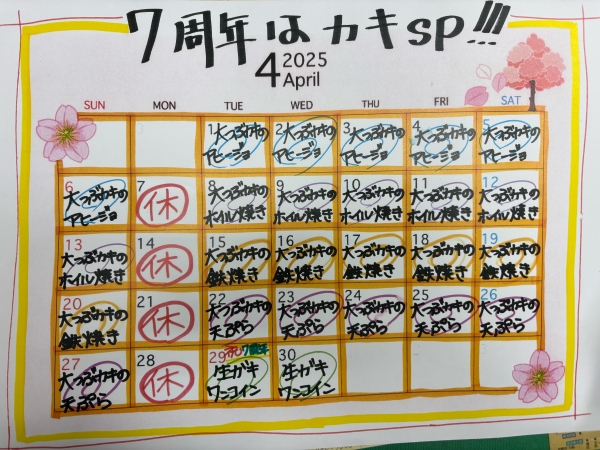 7周年はカキSP!!!
4 2025 April
SUN MON TUE WED THU FRI SAT
1 大つぶカキのアヒージョ 2 大つぶカキのアヒージョ 3 大つぶカキのアヒージョ 4 大つぶカキのアヒージョ 5 大つぶカキのアヒージョ
6 大つぶカキのアヒージョ 7 休 8 大つぶカキのホイル焼き 9 大つぶカキのホイル焼き 10 大つぶカキのホイル焼き 11 大つぶカキのホイル焼き 12 大つぶカキのホイル焼き
13 大つぶカキのホイル焼き 14 休 15 大つぶカキの鉄焼き 16 大つぶカキの鉄焼き 17 大つぶカキの鉄焼き 18 大つぶカキの鉄焼き 19 大つぶカキの鉄焼き
20 大つぶカキの鉄焼き 21 休 22 大つぶカキの天ぷら 23 大つぶカキの天ぷら 24 大つぶカキの天ぷら 25 大つぶカキの天ぷら 26 大つぶカキの天ぷら
27 大つぶカキの天ぷら 28 休 29 7周年 生ガキワンコイン 30 生ガキワンコイン